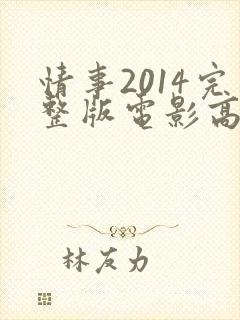 情事2014完
整版電影高
林友力